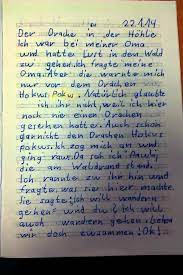 22.1.14
Der Drache in der Höhle
Ich war bei meiner Oma
und hatte Lust in den Wald
zu gehen. Ich fragte meine
Oma. Aber die warnte mich
nur vor dem Drachen
Hokus Pokus. Natürlich glaubte
ich ihr nicht, weil ich hier
noch nie einen Drachen
gesehen hatte. Auch schon
garnicht den Drachen Hokus
pokus. Ich zog mich an und
ging raus. Da sah ich Pauly,
die am Waldrang stand.
Ich rannte zu ihr hin und
fragte, was sie hier machte.
Sie sagte: Ich will wandern
gehen! und du? Ich will
auch wandern gehen!
wir doch zusammen! Ok!